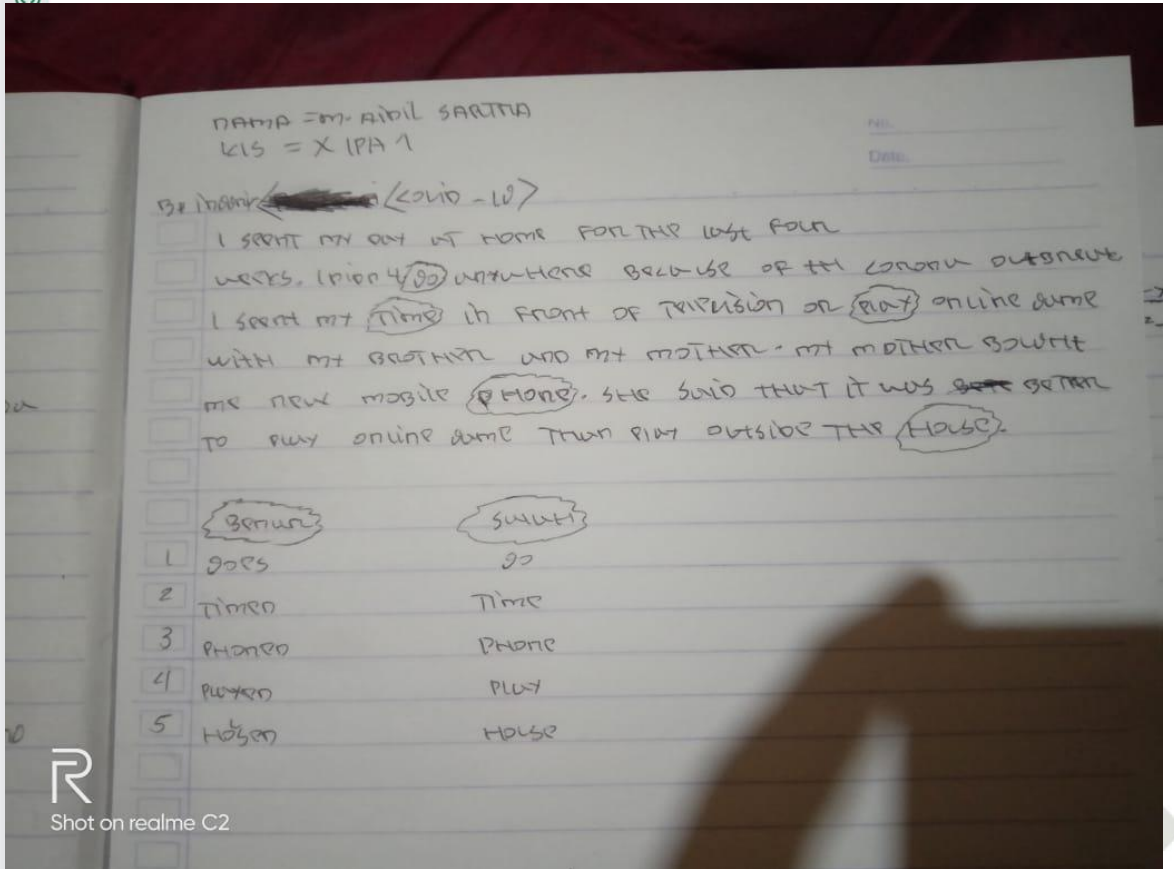 NAMA = M. AIDIL SARTMA
KLS = X IPA 1
No.
Date.
(COVID-19)
I SPENT MY DAY AT HOME FOR THE LAST FOUR
WEEKS. I DIDN'T GO ANYWHERE BECAUSE OF THE CORONA
I SPENT MY TIME IN FRONT OF TELEVISION OR PLAY ONLINE GAME
WITH MY BROTHER AND MY MOTHER. MY MOTHER
ME NEW MOBILE PHONE. SHE SAID THAT IT WAS BETTER
TO PLAY ONLINE GAME THAN PLAY OUTSIDE THE HOUSE.
BENAR SALAH
1 GOES GO
2 TIMED TIME
3 PHONED PHONE
4 PLAYED PLAY
5 HOUSED HOUSE
R
Shot on realme C2